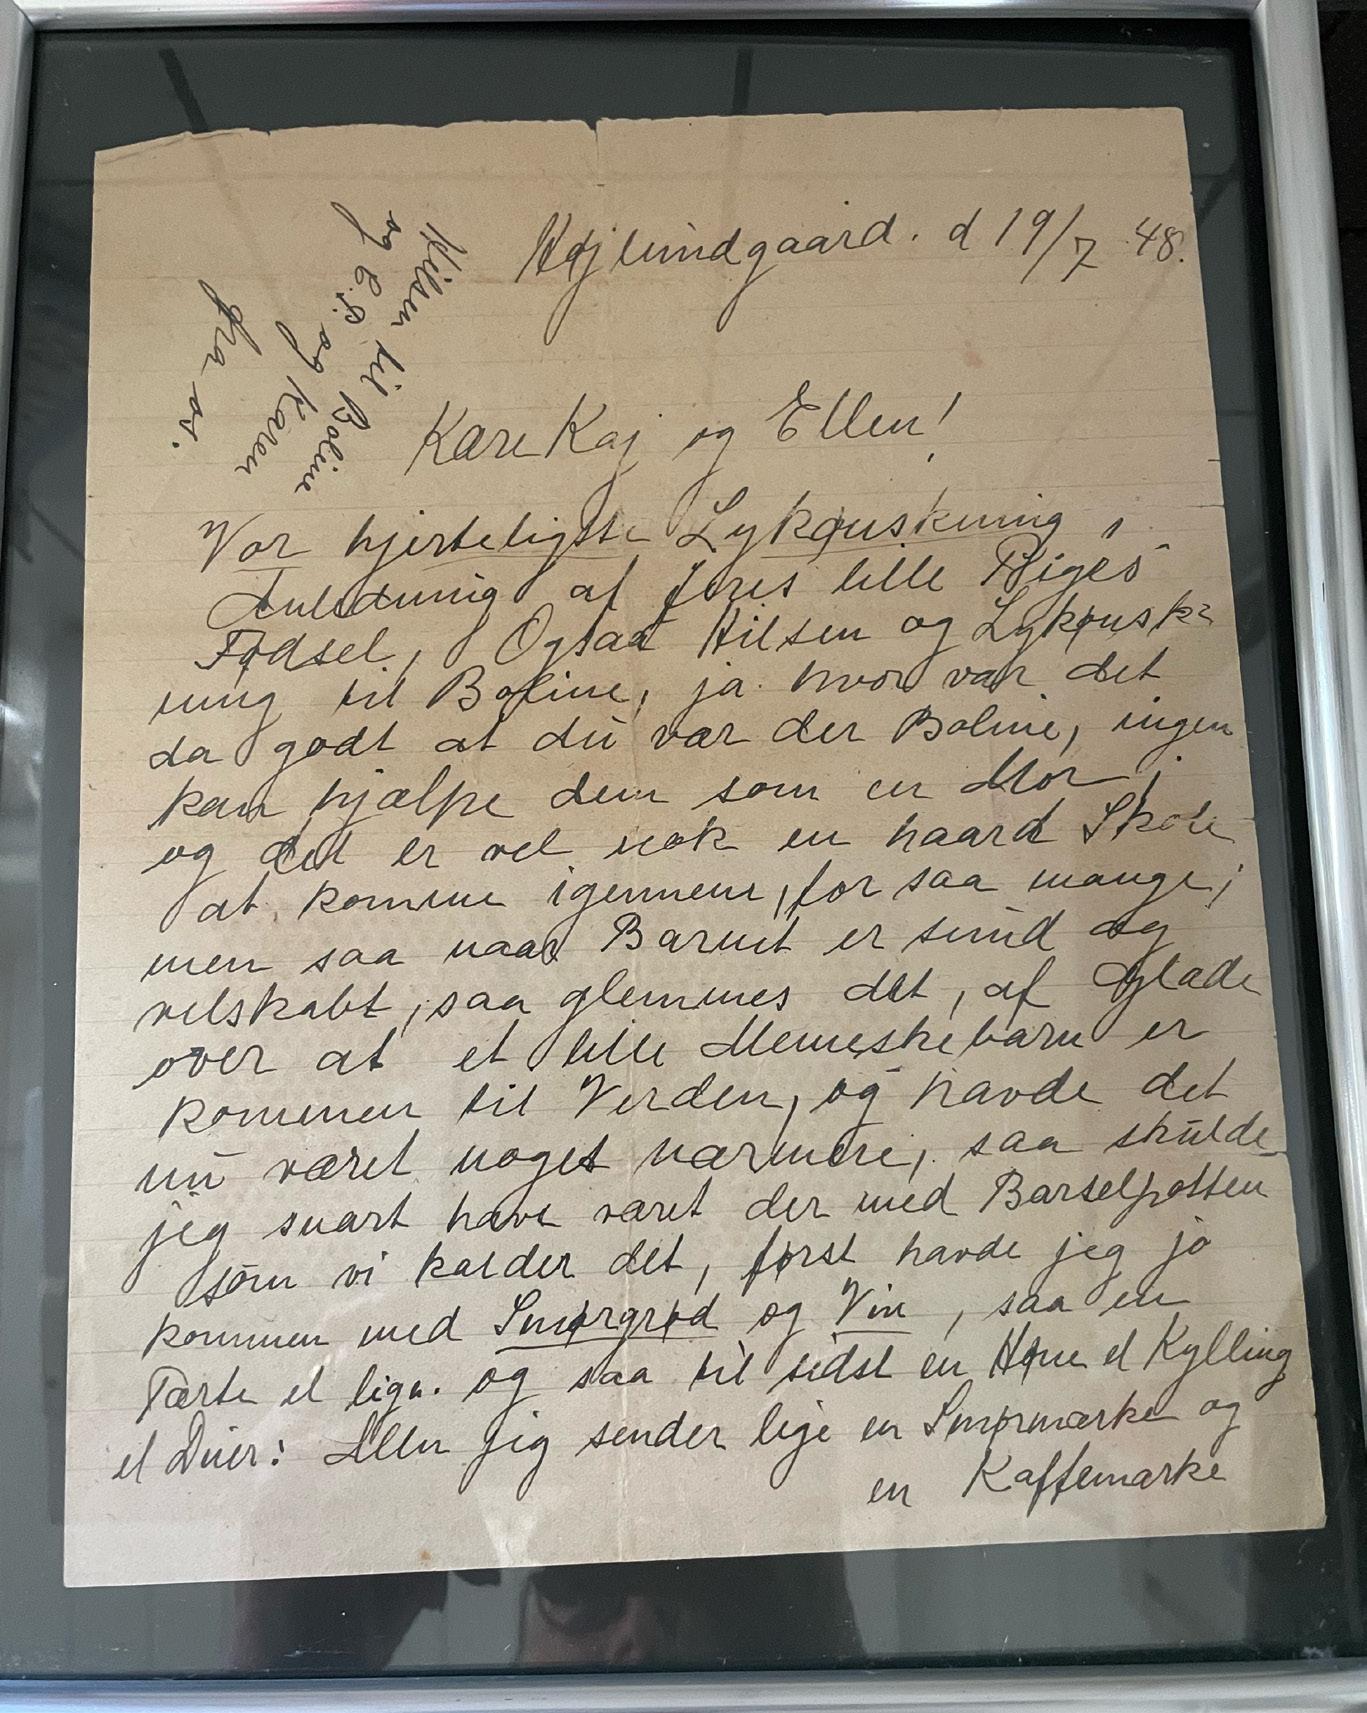 Højlundgaard. d 19/7 48.
Hilsen til Boline
og C.P. og Karen
fra os.
Kære Kaj og Ellen!
Vor hjerteligste Lykønskning i
Anledning af Jeres lille Piges
Fødsel, Ogsaa Hilsen og Lykønsk=
ning til Boline, ja hvor var det
da godt at du var der Boline, ingen
kan hjælpe dem som en Mor,
og det er vel nok en haard Skole
at komme igennem, for saa mange,
men saa naar Barnet er sund og
velskabt, saa glemmes det, af Glæde
over at et lille Menneskebarn er
kommen til Verden, og havde det
nu været noget nærmere, saa skulde
jeg snart have været der med Barselpotten
som vi kalder det, først havde jeg jo
kommen med Smørgrød og Vin, saa en
Tærte el lign. og saa til sidst en Høne el Kylling
el Duer: Men jeg sender lige en Smørmærke og
en Kaffemærke